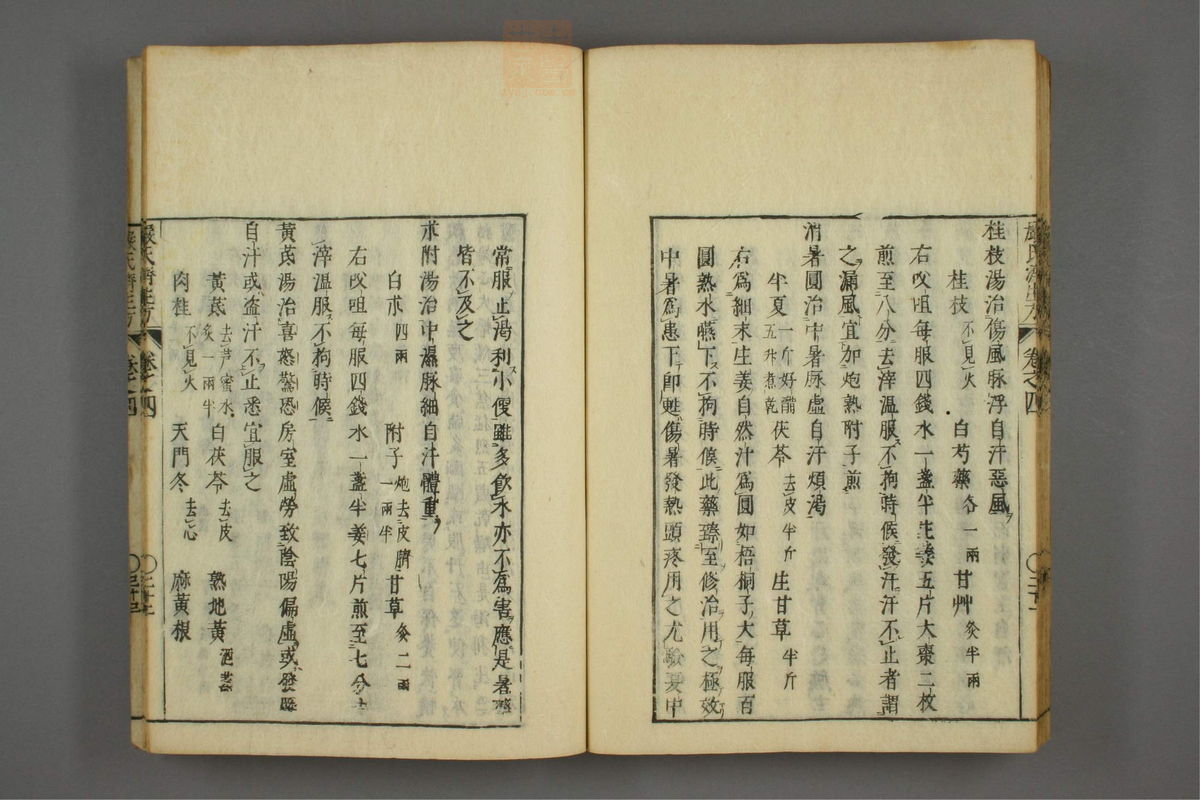 桂枝湯治傷風脉浮自汗惡風
桂枝 不見火 白芍藥 各一兩 甘艸 灸半兩
右㕮咀每服四錢水一盞半生姜五片大棗二枚
煎至八分去滓溫服不拘時候發汗汗不止者謂
之漏風宜加炮熟附子煎
消暑圓治中暑脉虛自汗煩渴
半夏 一斤好醋五升煮乾 茯苓 去皮半斤 生甘草 半斤
右爲細末生姜自然汁爲圓如梧桐子大每服百
圓熟水嚥下不拘時候此藥臻至修治用之極效
中暑爲患下即甦傷暑發熱頭疼用之尤驗夏中
常服止渴利小便雖多飲水亦不爲害應是暑藥
皆不及之
朮附湯治中濕脉細自汗體重
白朮 四兩 附子 炮去皮臍一兩半 甘草 灸二兩
右㕮咀每服四錢水一盞半姜七片煎至七分去
滓溫服不拘時候
黃芪湯治喜怒驚恐房室虛勞致陰陽偏虛或發厥
自汗或盗汗不止悉宜服之
黃芪 去芦蜜水炙一兩半 白茯苓 去皮 熟地黃 酒蒸
肉桂 不見火 天門冬 去心 麻黃根
嚴氏濟生方 卷之四